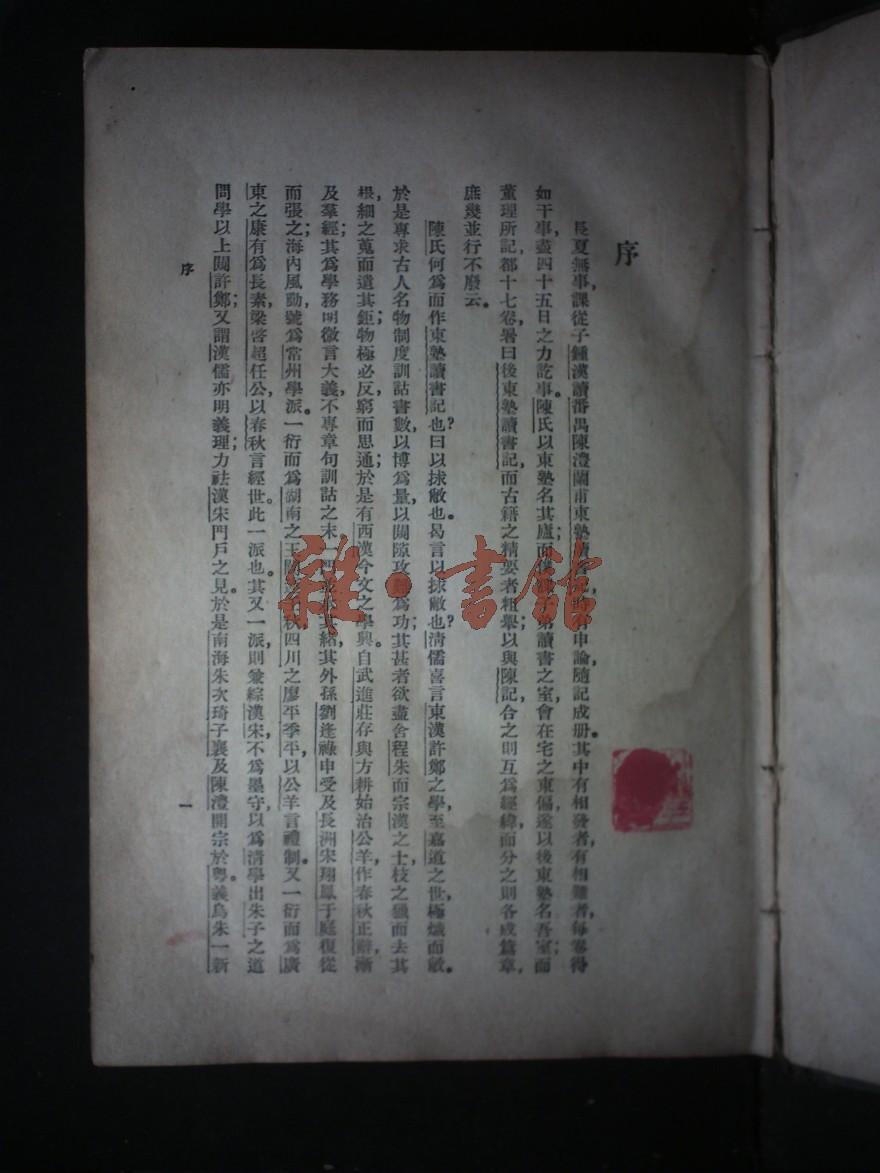 序
長夏無事,課從子鍾漢讀番禺陳澧蘭甫東塾讀書記,時有申論,隨記成册。其中有相發者,有相難者,每卷得
如干事,盡四十五日之力訖事。陳氏以東塾名其廬,而弟讀書之室,會在宅之東偏,遂以後東塾名吾室;而
董理所記,都十七卷,署曰後東塾讀書記,而古籍之精要者粗舉;以與陳記合之則互爲經緯,而分之則各成篇章,
庶幾並行不廢云。
陳氏何爲而作東塾讀書記也?曰以捄敝也。曷言以捄敝也?清儒喜言東漢許鄭之學,至嘉道之世,極熾而敝。
於是專求古人名物制度訓詁書數,以博爲量,以闚隙攻難爲功;其甚者欲盡舍程朱而宗漢之士,枝之獵而去其
根,細之蒐而遺其鉅;物極必反,窮而思通;於是有西漢今文之學興。自武進莊存與方耕始治公羊,作春秋正辭,漸
及羣經;其爲學務明微言大義,不專章句訓詁之末;一門並承其緒,其外孫劉逢祿申受及長洲宋翔鳳于庭復從
而張之;海內風動,號爲常州學派。一衍而爲湖南之王闓運壬秋,四川之廖平季平,以公羊言禮制。又一衍而爲廣
東之康有爲長素,梁啓超任公,以春秋言經世。此一派也。其又一派,則兼綜漢宋,不爲墨守,以爲清學出朱子之道
問學,以上闚許鄭;又謂漢儒亦明義理;力祛漢宋門戶之見。於是南海朱次琦子襄及陳澧開宗於粵。義烏朱一新
序
一
雜·書館